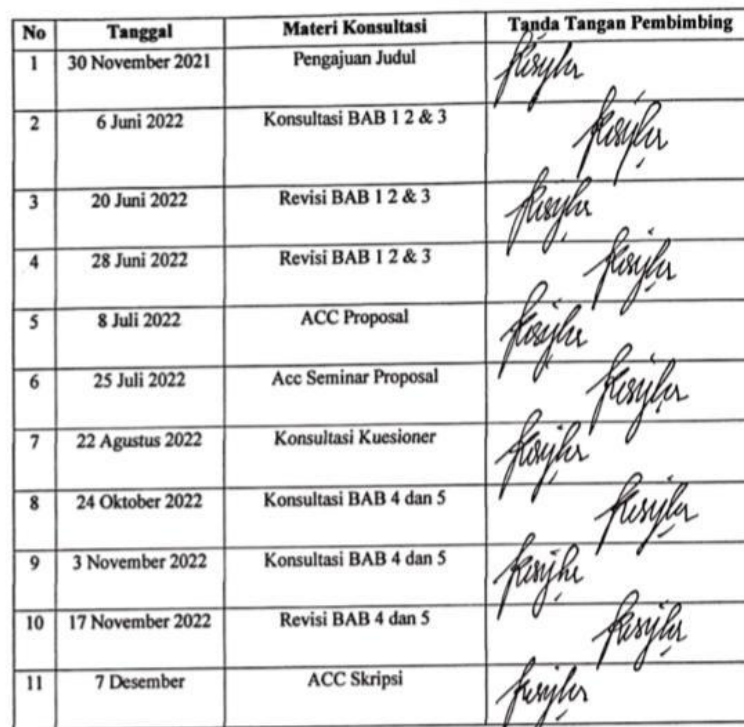 No Tanggal Materi Konsultasi Tanda Tangan Pembimbing
1 30 November 2021 Pengajuan Judul
2 6 Juni 2022 Konsultasi BAB 1 2 & 3
3 20 Juni 2022 Revisi BAB 1 2 & 3
4 28 Juni 2022 Revisi BAB 1 2 & 3
5 8 Juli 2022 ACC Proposal
6 25 Juli 2022 Acc Seminar Proposal
7 22 Agustus 2022 Konsultasi Kuesioner
8 24 Oktober 2022 Konsultasi BAB 4 dan 5
9 3 November 2022 Konsultasi BAB 4 dan 5
10 17 November 2022 Revisi BAB 4 dan 5
11 7 Desember ACC Skripsi